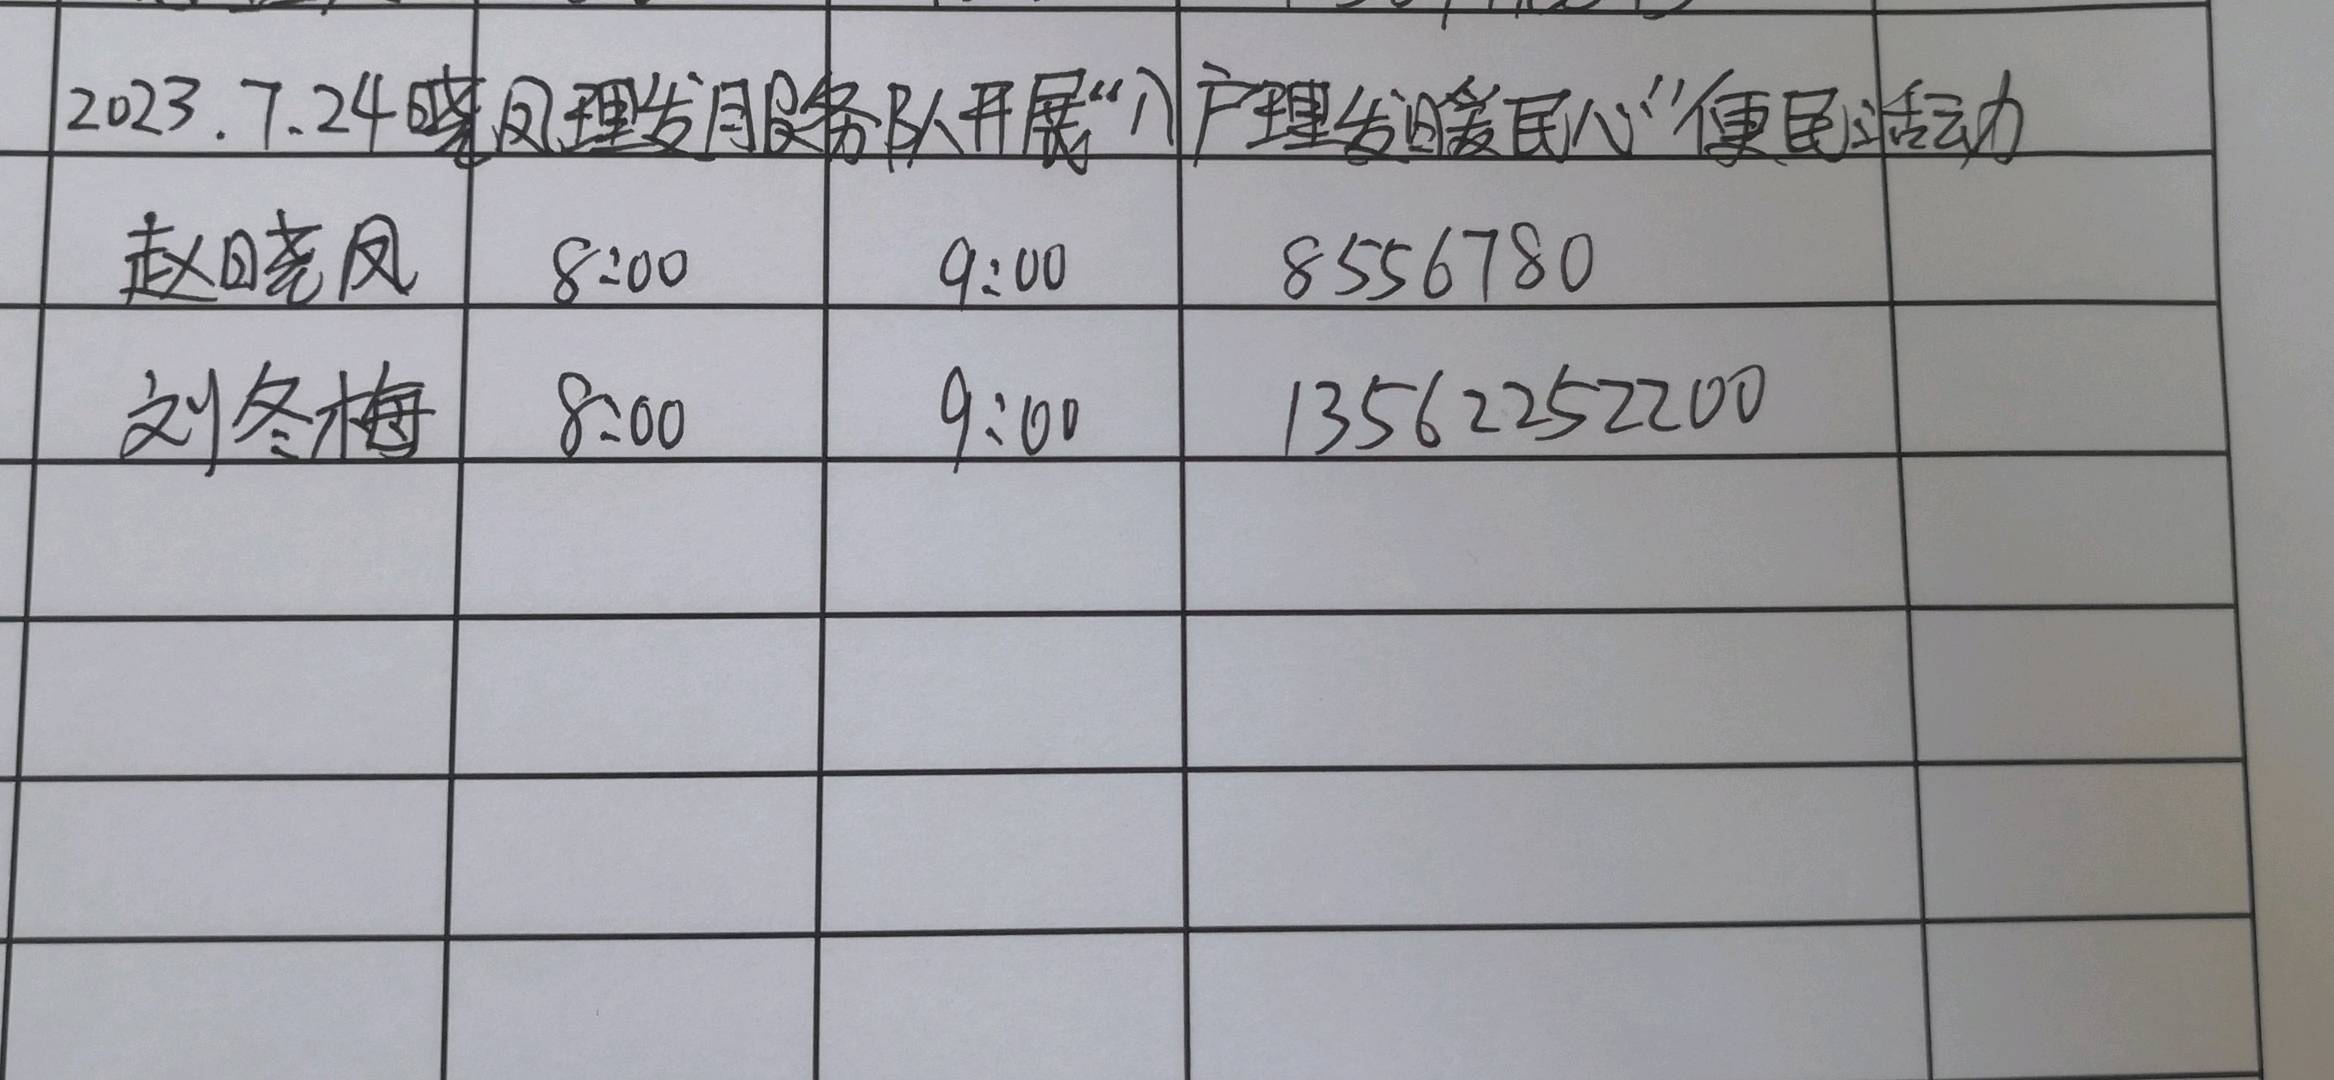 2023.7.24晓凤理发服务队开展“入户理发暖民心”便民活动
赵晓凤 8:00 9:00 8556780
刘冬梅 8:00 9:00 13562252200